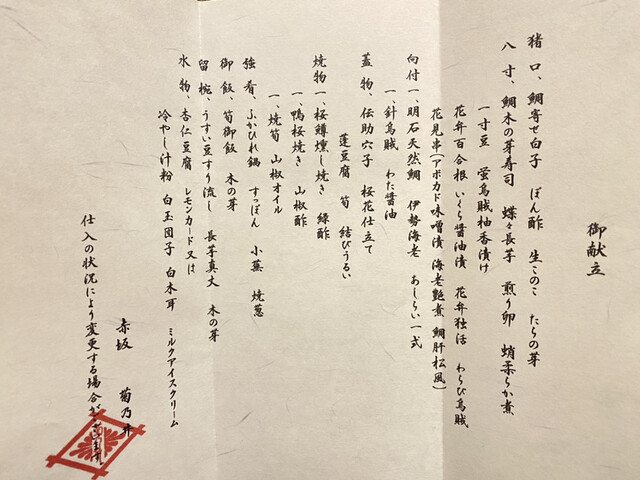 御献立
猪口、鯛寄せ白子 ぽん酢 生このこ たらの芽
八寸、鯛木の芽寿司 蝶々長芋 煎り卵 蛸柔らか煮
一寸豆 蛍烏賊柚香漬け
花弁百合根 いくら醤油漬 花弁独活 わらび烏賊
花見串(アボカド味噌漬 海老艶煮 鯛肝松風)
向付一、明石天然鯛 伊勢海老 あしらい一式
一、針烏賊 わた醤油
蓋物、伝助穴子 桜花仕立て
蓬豆腐 筍 結びうるい
焼物一、桜鱒燻し焼き 緑酢
一、鴨桜焼き 山椒酢
一、焼筍 山椒オイル
強肴、ふかひれ鍋 すっぽん 小蕪 焼葱
御飯、筍御飯 木の芽
留椀、うすい豆すり流し 長芋真丈 木の芽
水物、杏仁豆腐 レモンカード又は
冷やし汁粉 白玉団子 白木耳 ミルクアイスクリーム
赤坂 菊乃井
仕入の状況により変更する場合がございます。